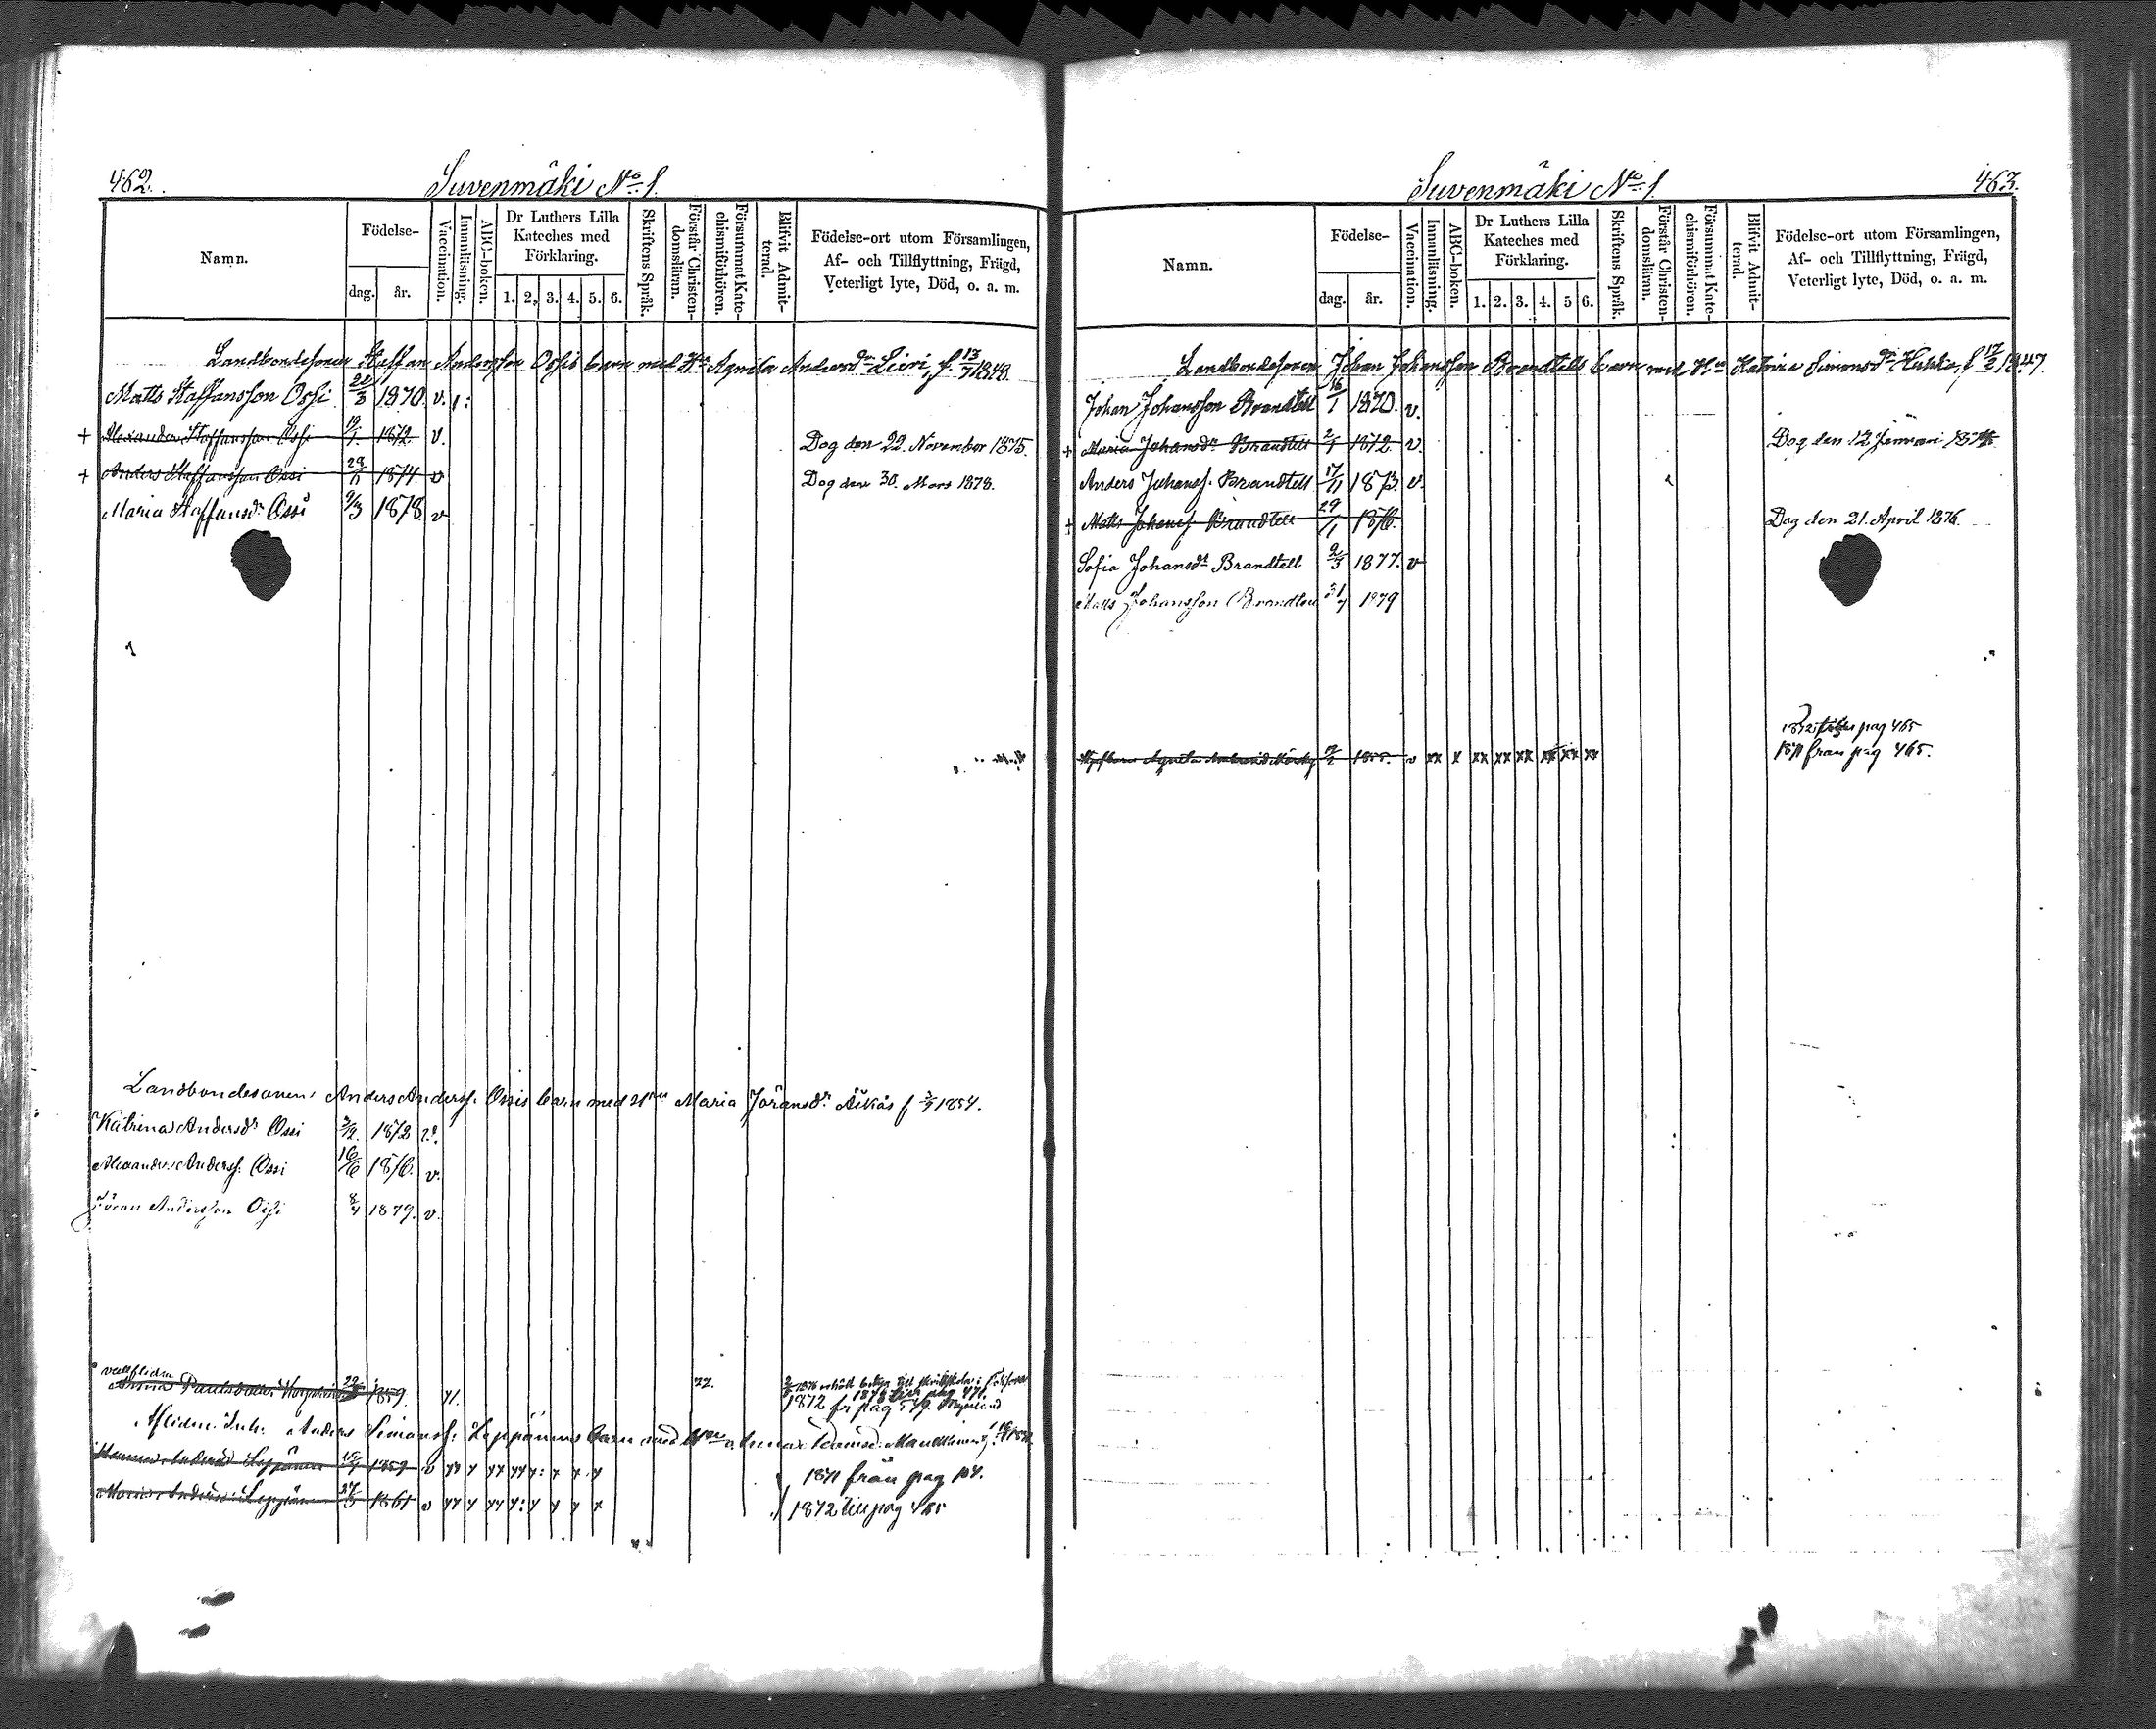 462.
Suvenmäki No 1.
Namn.
Födelse-
dag.
år.
Vaccination.
Innanläsning.
ABC-boken.
Dr Luthers Lilla
Kateches med
Förklaring.
1. 2. 3. 4. 5. 6.
Skriftens Språk.
Förstår Christen-
domsläran.
Försummat Kate-
chismiförhören.
Blifvit Admit-
terad.
Födelse-ort utom Församlingen,
Af- och Tillflyttning, Frägd,
Veterligt lyte, Död, o. a. m.
Landbondesonen Staffan Andersson Ossis barn med Hu Agneta Andersdr Lieri, f. 13/7 1848.
Matts Staffansson Ossi 22/3 1870. v. 1:
+ Alexander Staffansson Ossi 19/1. 1872. v. Dog den 22. November 1875.
+ Anders Staffansson Ossi 29/11 1874. v Dog den 30. Mars 1878.
Maria Staffansdr Ossi 9/3 1878 v
Landbondesonens Anders Anderss. Ossis barn med Hru Maria Jöransdr Äikäs f 1854.
Katrina Andersdr Ossi 3/12. 1872 v.
Alexander Anderss. Ossi 16/6 1876. v.
Jöran Andersson Ossi 8/4 1879. v.
Anna 1859.
22.
1872 fr pag
Anders Simonss. Leppänens barn med
Leppänen 1859 v
1871 från pag 104.
Maria 27/5 1861 v
1872 till pag 465
463.
Suvenmäki No 1.
Namn.
Födelse-
dag.
år.
Vaccination.
Innanläsning.
ABC-boken.
Dr Luthers Lilla
Kateches med
Förklaring.
1. 2. 3. 4. 5 6.
Skriftens Språk.
Förstår Christen-
domsläran.
Försummat Kate-
chismiförhören.
Blifvit Admit-
terad.
Födelse-ort utom Församlingen,
Af- och Tillflyttning, Frägd,
Veterligt lyte, Död, o. a. m.
Landbondesonen Johan Johansson Brandtells barn med Hu Katrina Simonsdr f 17/2 1847.
Johan Johansson Brandtell 16/1 1870. v.
+ Maria Johansdr Brandtell 2/1 1872. v. Dog den 12 Januari 1874.
Anders Johanss. Brandtell 17/11 1873. v.
+ Matts Johanss Brandtell 29/1 1876. Dog den 21. April 1876.
Sofia Johansdr Brandtell. 2/3 1877. v
Matts Johansson Brandtell 31/7 1879
1872 till pag 465
Agneta v xx x xx xx xx xx xx xx 1871 från pag 465.